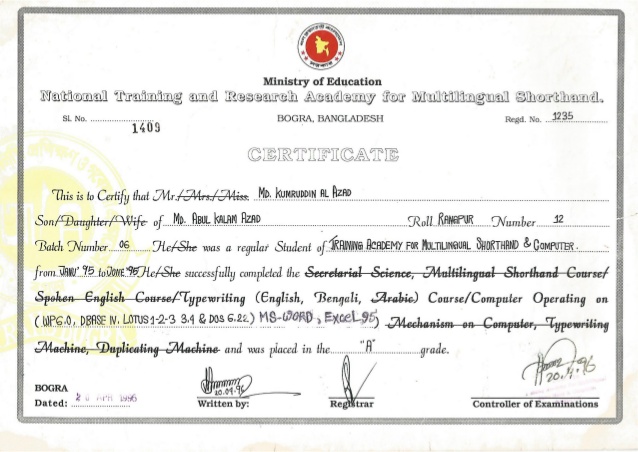 Ministry of Education
National Training and Research Academy for Multilingual Shorthand.
Sl. No. 1409 BOGRA, BANGLADESH Regd. No. 1235
CERTIFICATE
This is to Certify that Mr./Mrs./Miss. MD. KUMRUDDIN AL AZAD
Son/Daughter/Wife of MD. ABUL KALAM AZAD Roll RANAPUR Number 12
Batch Number 06 He/She was a regular Student of TRAINING ACADEMY FOR MULTILINGUAL SHORTHAND & COMPUTER.
from JANU' 95 to JUNE '95 He/She successfully completed the Secretarial Science, Multilingual Shorthand Course/
Spoken English Course/Typewriting (English, Bengali, Arabic) Course/Computer Operating on
(WP5.0, DBASE IV, LOTUS 1-2-3 3.4 & DOS 6.22) MS-WORD, EXCEL 95) Mechanism on Computer, Typewriting
Machine, Duplicating Machine and was placed in the "A" grade.
20.04.96
BOGRA
Dated: APR 1996 Written by: Registrar Controller of Examinations